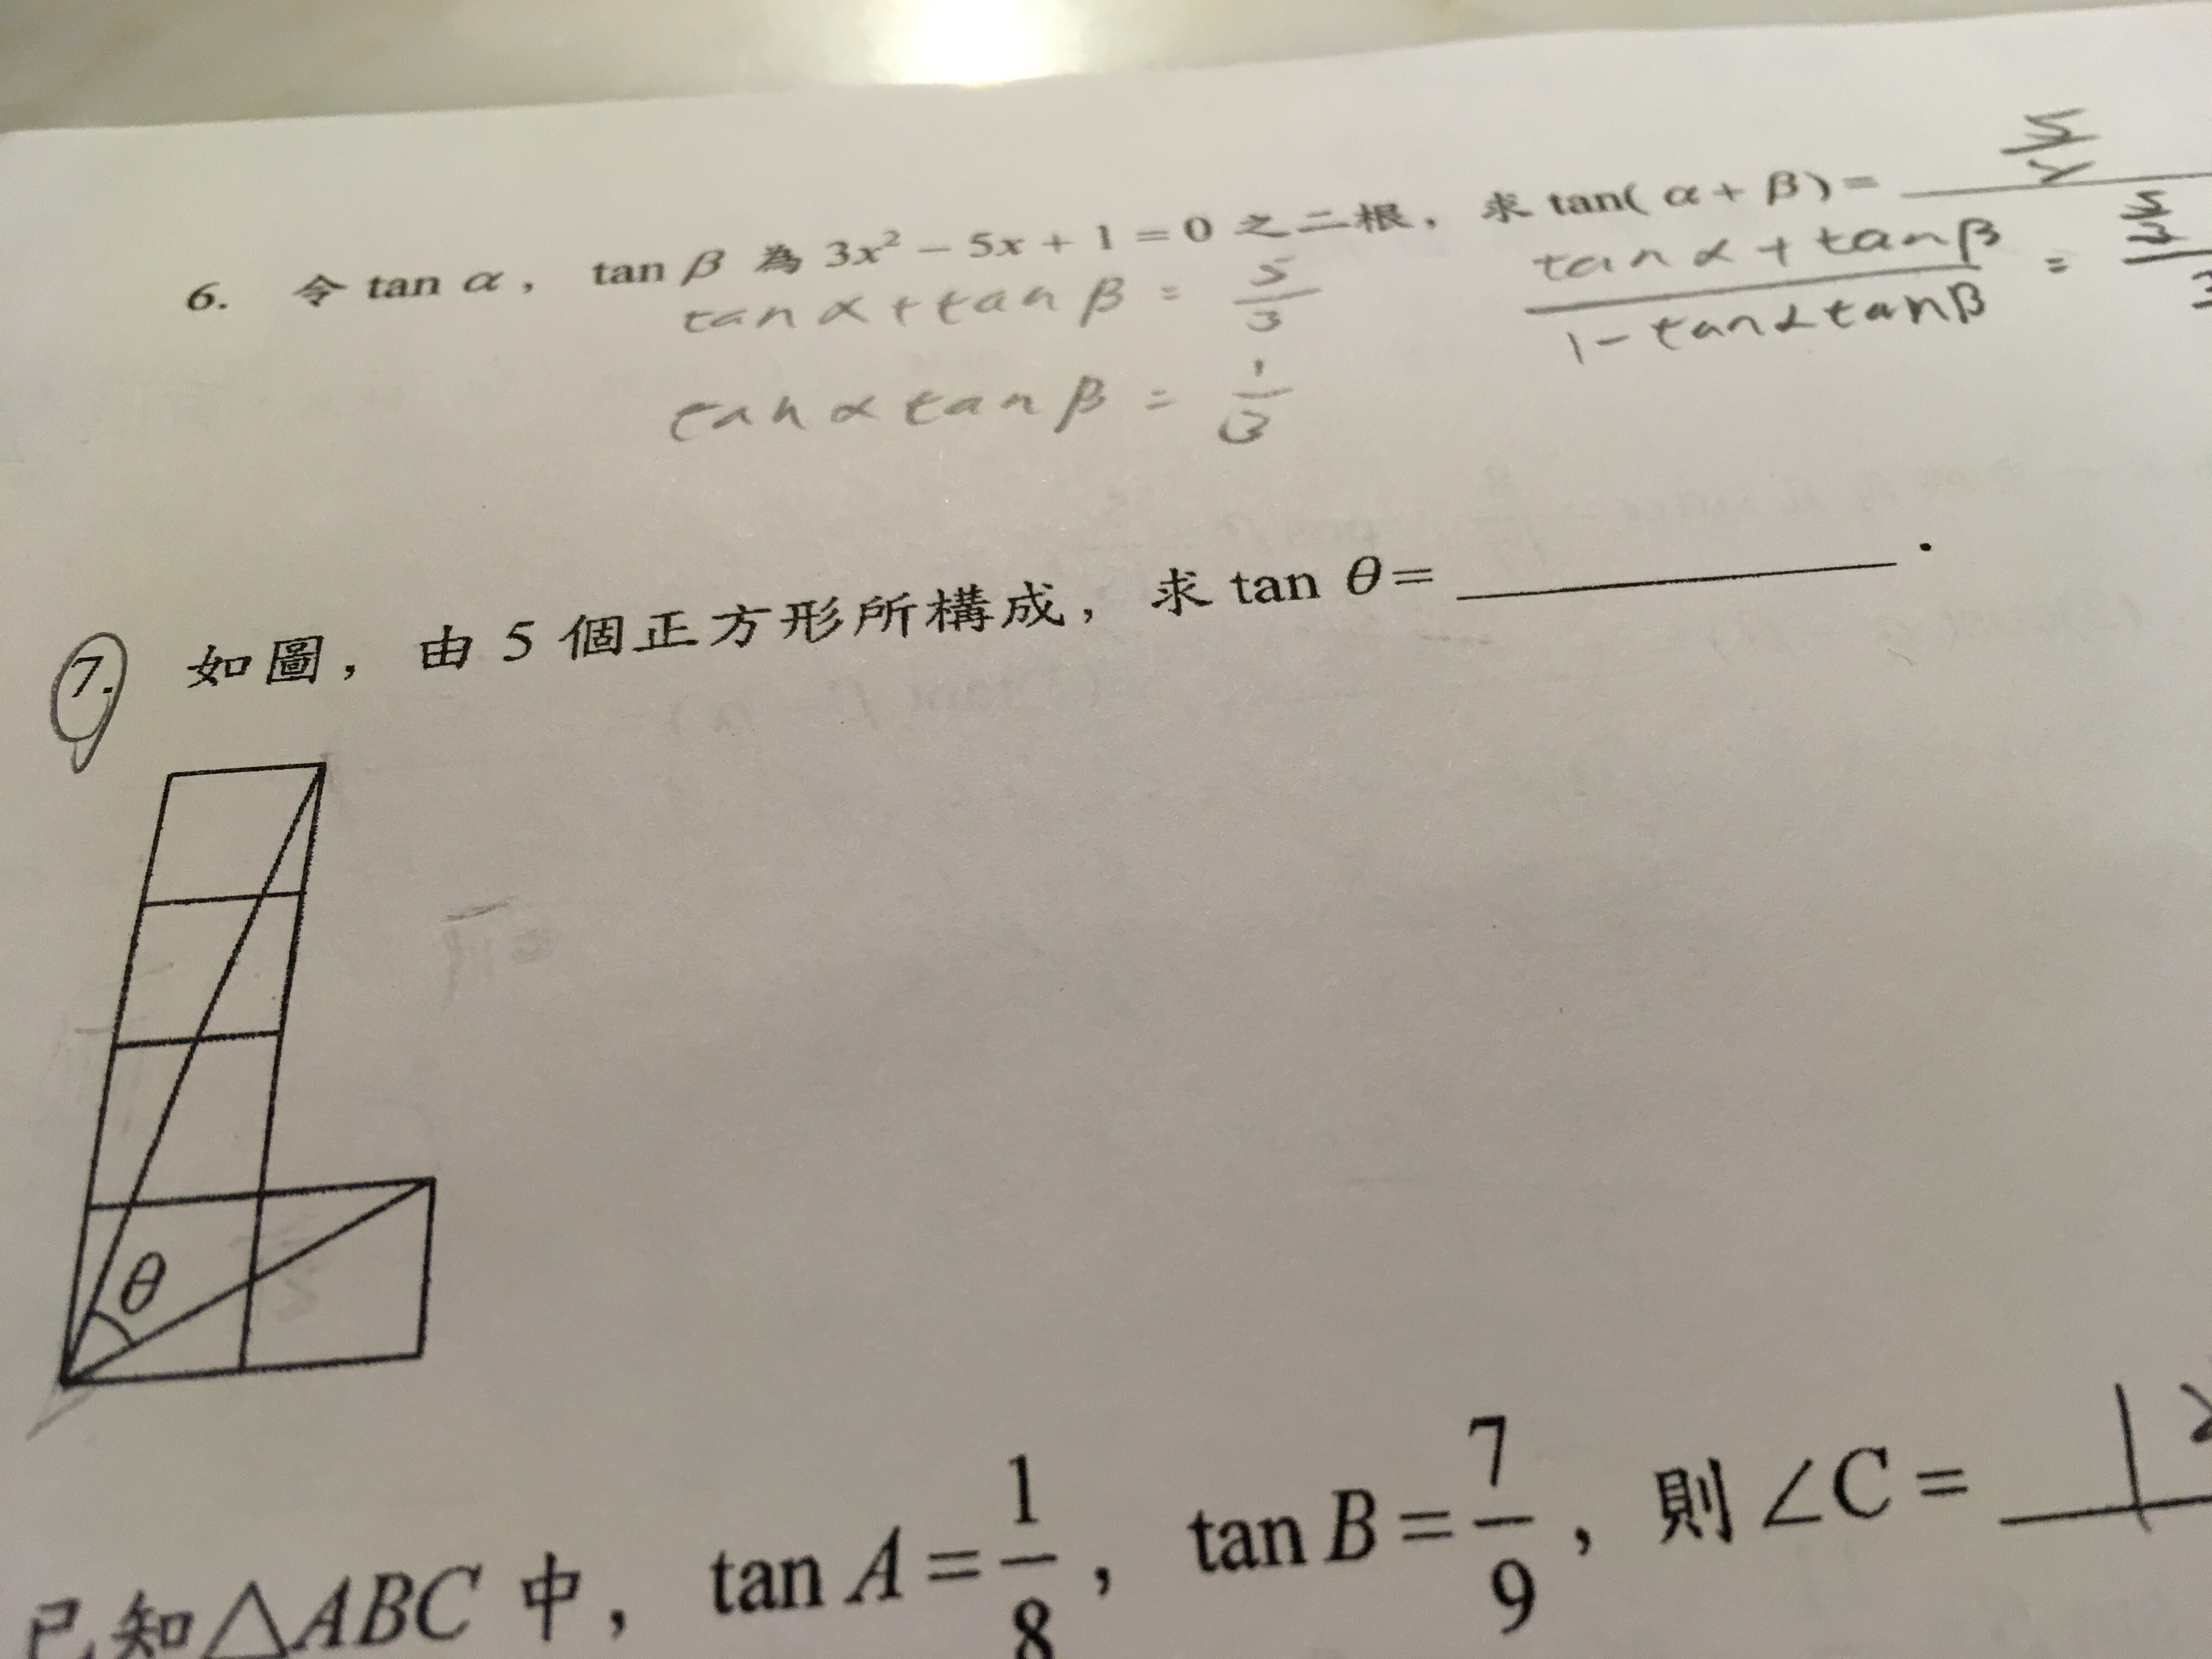 6. 令 tan α, tan β 為 3x² − 5x + 1 = 0 之二根, 求 tan( α + β ) = 5/2
tan α + tan β = 5/3
(tan α + tan β)/(1 − tan α tan β) = (5/3)/
tan α tan β = 1/3
7. 如圖, 由 5 個正方形所構成, 求 tan θ = ________.
θ
已知△ABC 中, tan A = 1/8, tan B = 7/9, 則 ∠C = 1